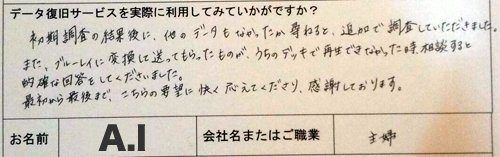 データ復旧サービスを実際に利用してみていかがですか？
初期調査の結果後に、他のデータもなかったか尋ねると、追加で調査していただきました。
また、ブルーレイに変換して送ってもらったものが、うちのデッキで再生できなかった時、相談すると
的確な回答をしてくださいました。
最初から最後まで、こちらの要望に快く応えてくださり、感謝しております。
お名前 A.I 会社名またはご職業 主婦